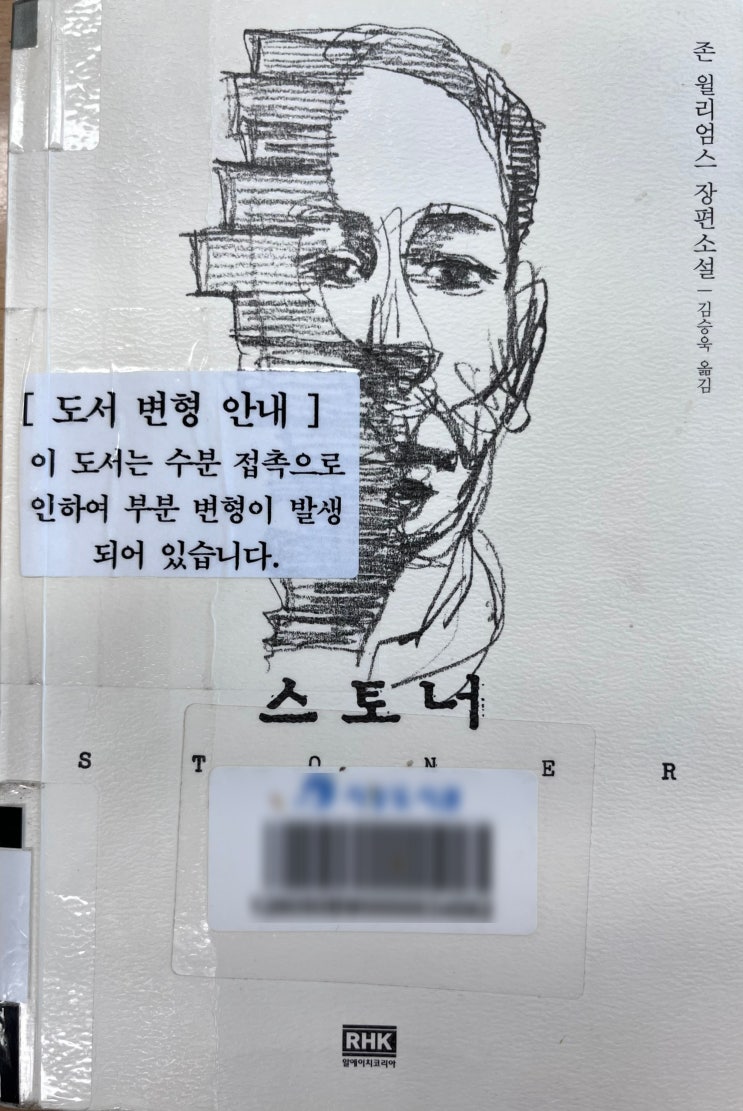 존 윌리엄스 장편소설 — 김승욱 옮김
[ 도서 변형 안내 ]
이 도서는 수분 접촉으로
인하여 부분 변형이 발생
되어 있습니다.
스토너
S T O N E R
RHK
알에이치코리아